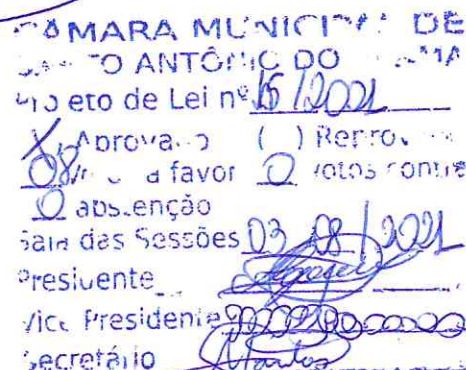 CÂMARA MUNICIPAL DE
SANTO ANTÔNIO DO
Projeto de Lei nº 15/2021
X Aprovado ( ) Reprov
08 a favor 0 votos contra
0 abstenção
Sala das Sessões 03 08/2021
Presidente
Vice Presidente
Secretário